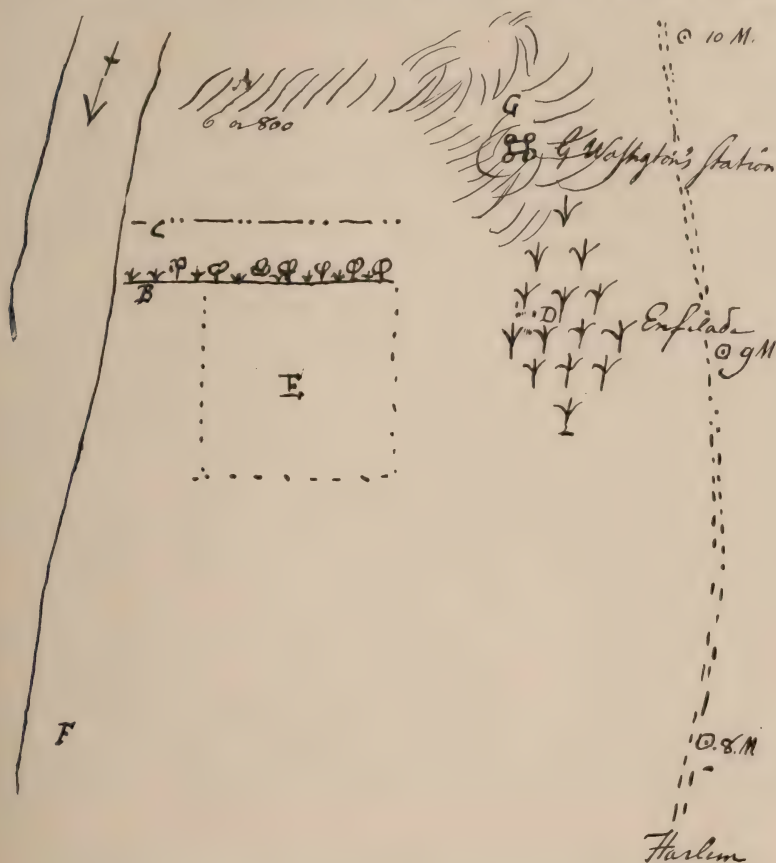 10 M.
A
6 or 800
G
G Washgton's Station
C
B
D
Enfilade
9 M
E
F
8. M
Harlem